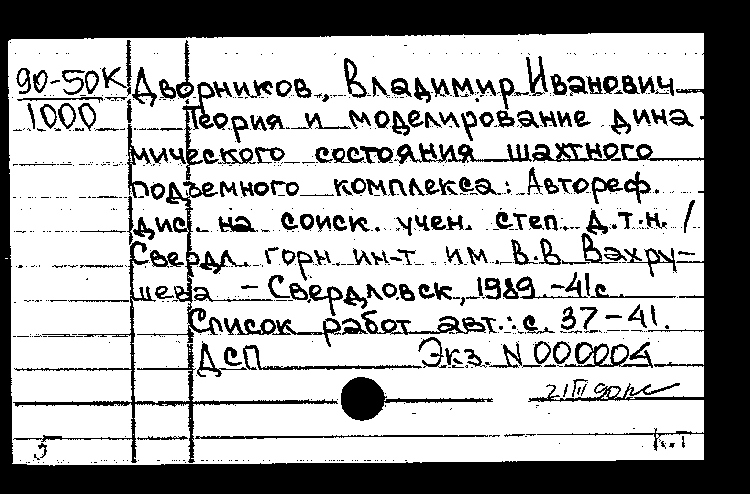 90-50К Дворников, Владимир Иванович
1000 Теория и моделирование дина-
мического состояния шахтного
подъемного комплекса: Автореф.
дис. на соиск. учен. степ. д.т.н. /
Свердл. горн. ин-т им. В.В Вахру-
шева - Свердловск, 1989.-41с.
Список работ авт.: с. 37-41.
ДСП Экз. N 000004
21 III 90
5 К.Т